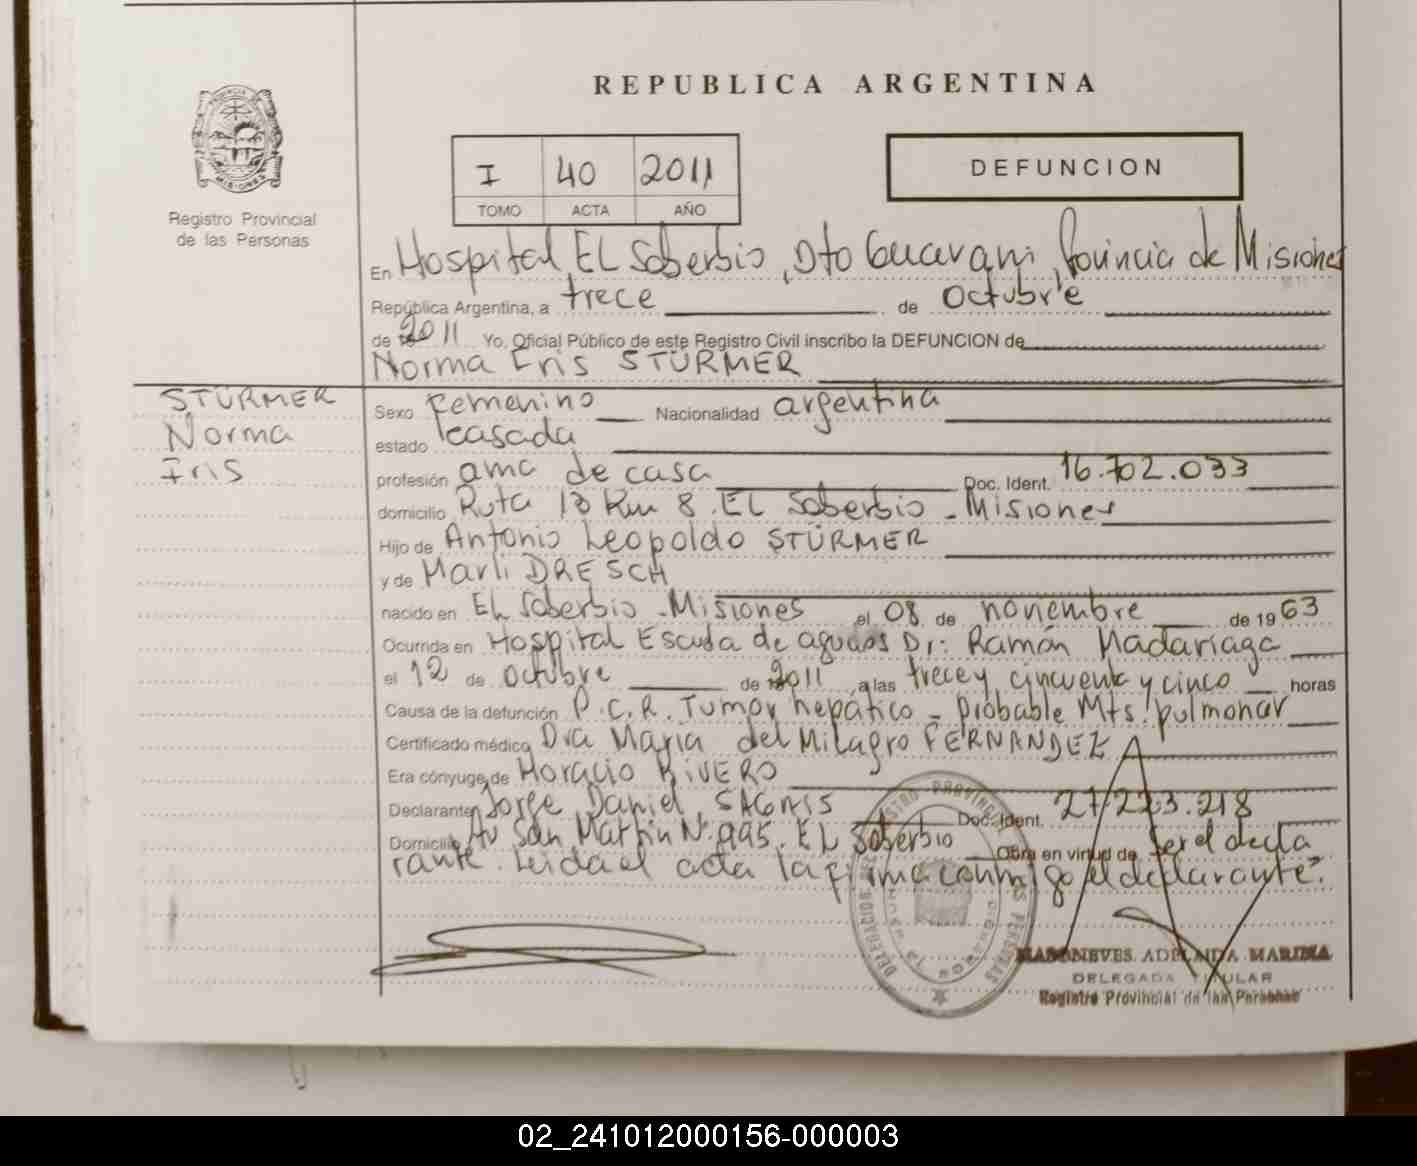 REPUBLICA ARGENTINA
PROVINCIA DE
MISIONES
Registro Provincial
de las Personas
I 40 2011
TOMO ACTA AÑO
DEFUNCION
En Hospital EL Soberbio, Dto Guarani, Provincia de Misiones
República Argentina, a trece de octubre
de 2011 Yo, Oficial Público de este Registro Civil inscribo la DEFUNCION de
Norma Iris STÜRMER
STÜRMER
Norma
Iris
Sexo femenino Nacionalidad argentina
estado casada
profesión ama de casa Doc. Ident. 16.702.033
domicilio Ruta 13 Km 8. EL Soberbio - Misiones
Hijo de Antonio Leopoldo STÜRMER
y de Marli DRESCH
nacido en EL Soberbio - Misiones el 08 de noviembre de 1963
Ocurrida en Hospital Escuela de agudos Dr: Ramón Madariaga
el 12 de octubre de 2011 a las trece y cincuenta y cinco horas
Causa de la defunción P.C.R. Tumor hepático - probable Mts. pulmonar
Certificado médico Dra Maria del Milagro FERNANDEZ
Era cónyuge de Horacio RIVERO
Declarante Jorge Daniel Doc. Ident. 27/223.218
Domicilio Av San Martin N° 995. EL Soberbio Obra en virtud de ser el decla
rante. Leida el acta la firma conmigo el declarante.
MASONEVES, ADELAIDA MARINA
DELEGADA TITULAR
Registro Provincial de las Personas
02_241012000156-000003